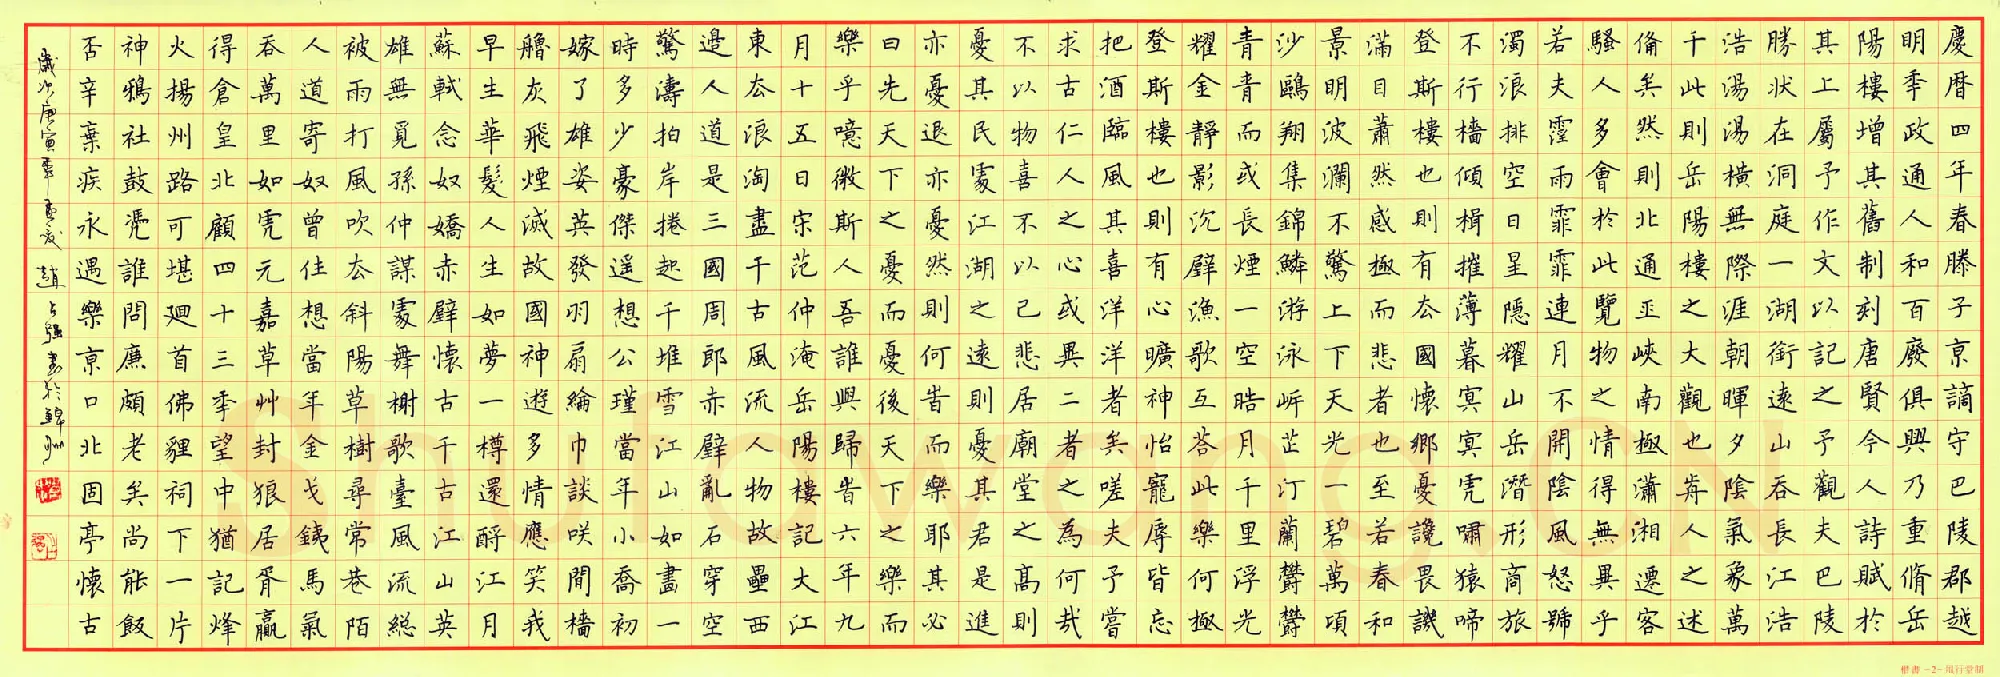 慶曆四年春滕子京謫守巴陵郡越
明年政通人和百廢俱興乃重脩岳
陽樓增其舊制刻唐賢今人詩賦於
其上屬予作文以記之予觀夫巴陵
勝狀在洞庭一湖銜遠山吞長江浩
浩湯湯橫無際涯朝暉夕陰氣象萬
千此則岳陽樓之大觀也前人之述
備矣然則北通巫峽南極瀟湘遷客
騷人多會於此覽物之情得無異乎
若夫霪雨霏霏連月不開陰風怒號
濁浪排空日星隱耀山岳潛形商旅
不行檣傾楫摧薄暮冥冥虎嘯猿啼
登斯樓也則有去國懷鄉憂讒畏譏
滿目蕭然感極而悲者也至若春和
景明波瀾不驚上下天光一碧萬頃
沙鷗翔集錦鱗游泳岸芷汀蘭鬱鬱
青青而或長煙一空皓月千里浮光
耀金靜影沉璧漁歌互答此樂何極
登斯樓也則有心曠神怡寵辱皆忘
把酒臨風其喜洋洋者矣嗟夫予嘗
求古仁人之心或異二者之為何哉
不以物喜不以己悲居廟堂之高則
憂其民處江湖之遠則憂其君是進
亦憂退亦憂然則何時而樂耶其必
曰先天下之憂而憂後天下之樂而
樂乎噫微斯人吾誰與歸時六年九
月十五日宋范仲淹岳陽樓記大江
東去浪淘盡千古風流人物故壘西
邊人道是三國周郎赤壁亂石穿空
驚濤拍岸捲起千堆雪江山如畫一
時多少豪傑遥想公瑾當年小喬初
嫁了雄姿英發羽扇綸巾談笑間檣
艣灰飛煙滅故國神遊多情應笑我
早生華髮人生如夢一樽還酹江月
蘇軾念奴嬌赤壁懷古千古江山英
雄無覓孫仲謀處舞榭歌臺風流總
被雨打風吹去斜陽草樹尋常巷陌
人道寄奴曾住想當年金戈鐵馬氣
吞萬里如虎元嘉草艸封狼居胥贏
得倉皇北顧四十三年望中猶記烽
火揚州路可堪迴首佛貍祠下一片
神鴉社鼓憑誰問廉頗老矣尚能飯
否辛棄疾永遇樂京口北固亭懷古
歲次庚寅年孟夏 趙占強書於
Shufawang.CN
楷書-2-風行堂制